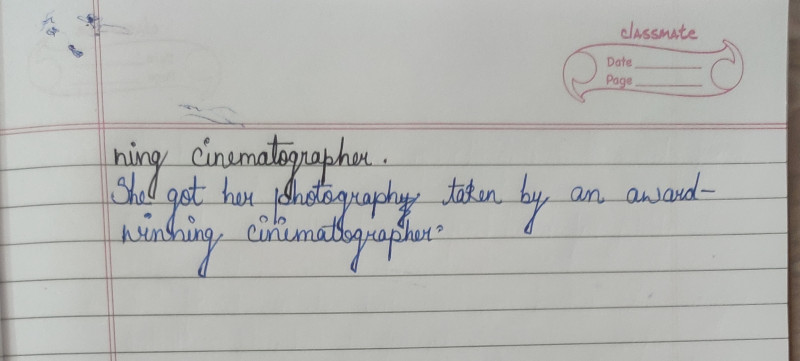 classmate
Date
Page
ning cinematographer.
She got her photography taken by an award-
winning cinematographer.